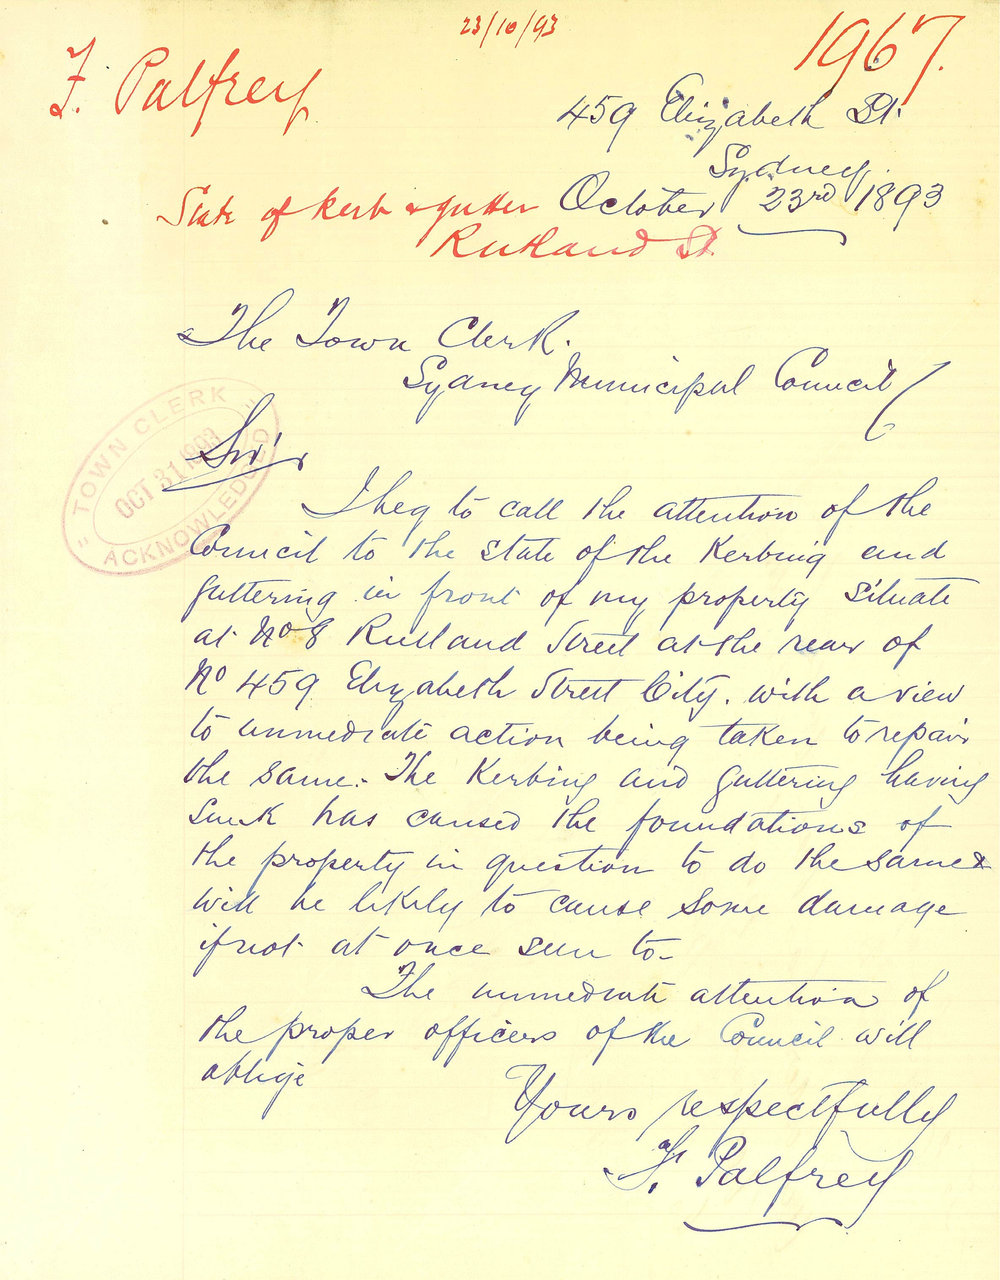 23/10/93
1967.
F. Palfrey
459 Elizabeth St.
Sydney.
State of Kerb & gutter October 23rd 1893
Rutland St
The Town Clerk.
Sydney Municipal Council
TOWN CLERK
OCT 31 1893
ACKNOWLEDGED
Sir,
I beg to call the attention of the
Council to the state of the Kerbing and
guttering in front of my property situate
at No 8 Rutland Street at the rear of
No 459 Elizabeth Street City. with a view
to immediate action being taken to repair
the same. The Kerbing and guttering having
sunk has caused the foundations of
the property in question to do the same &
will be likely to cause some damage
if not at once seen to -
The immediate attention of
the proper officers of the Council will
oblige
Yours respectfully
F. Palfrey